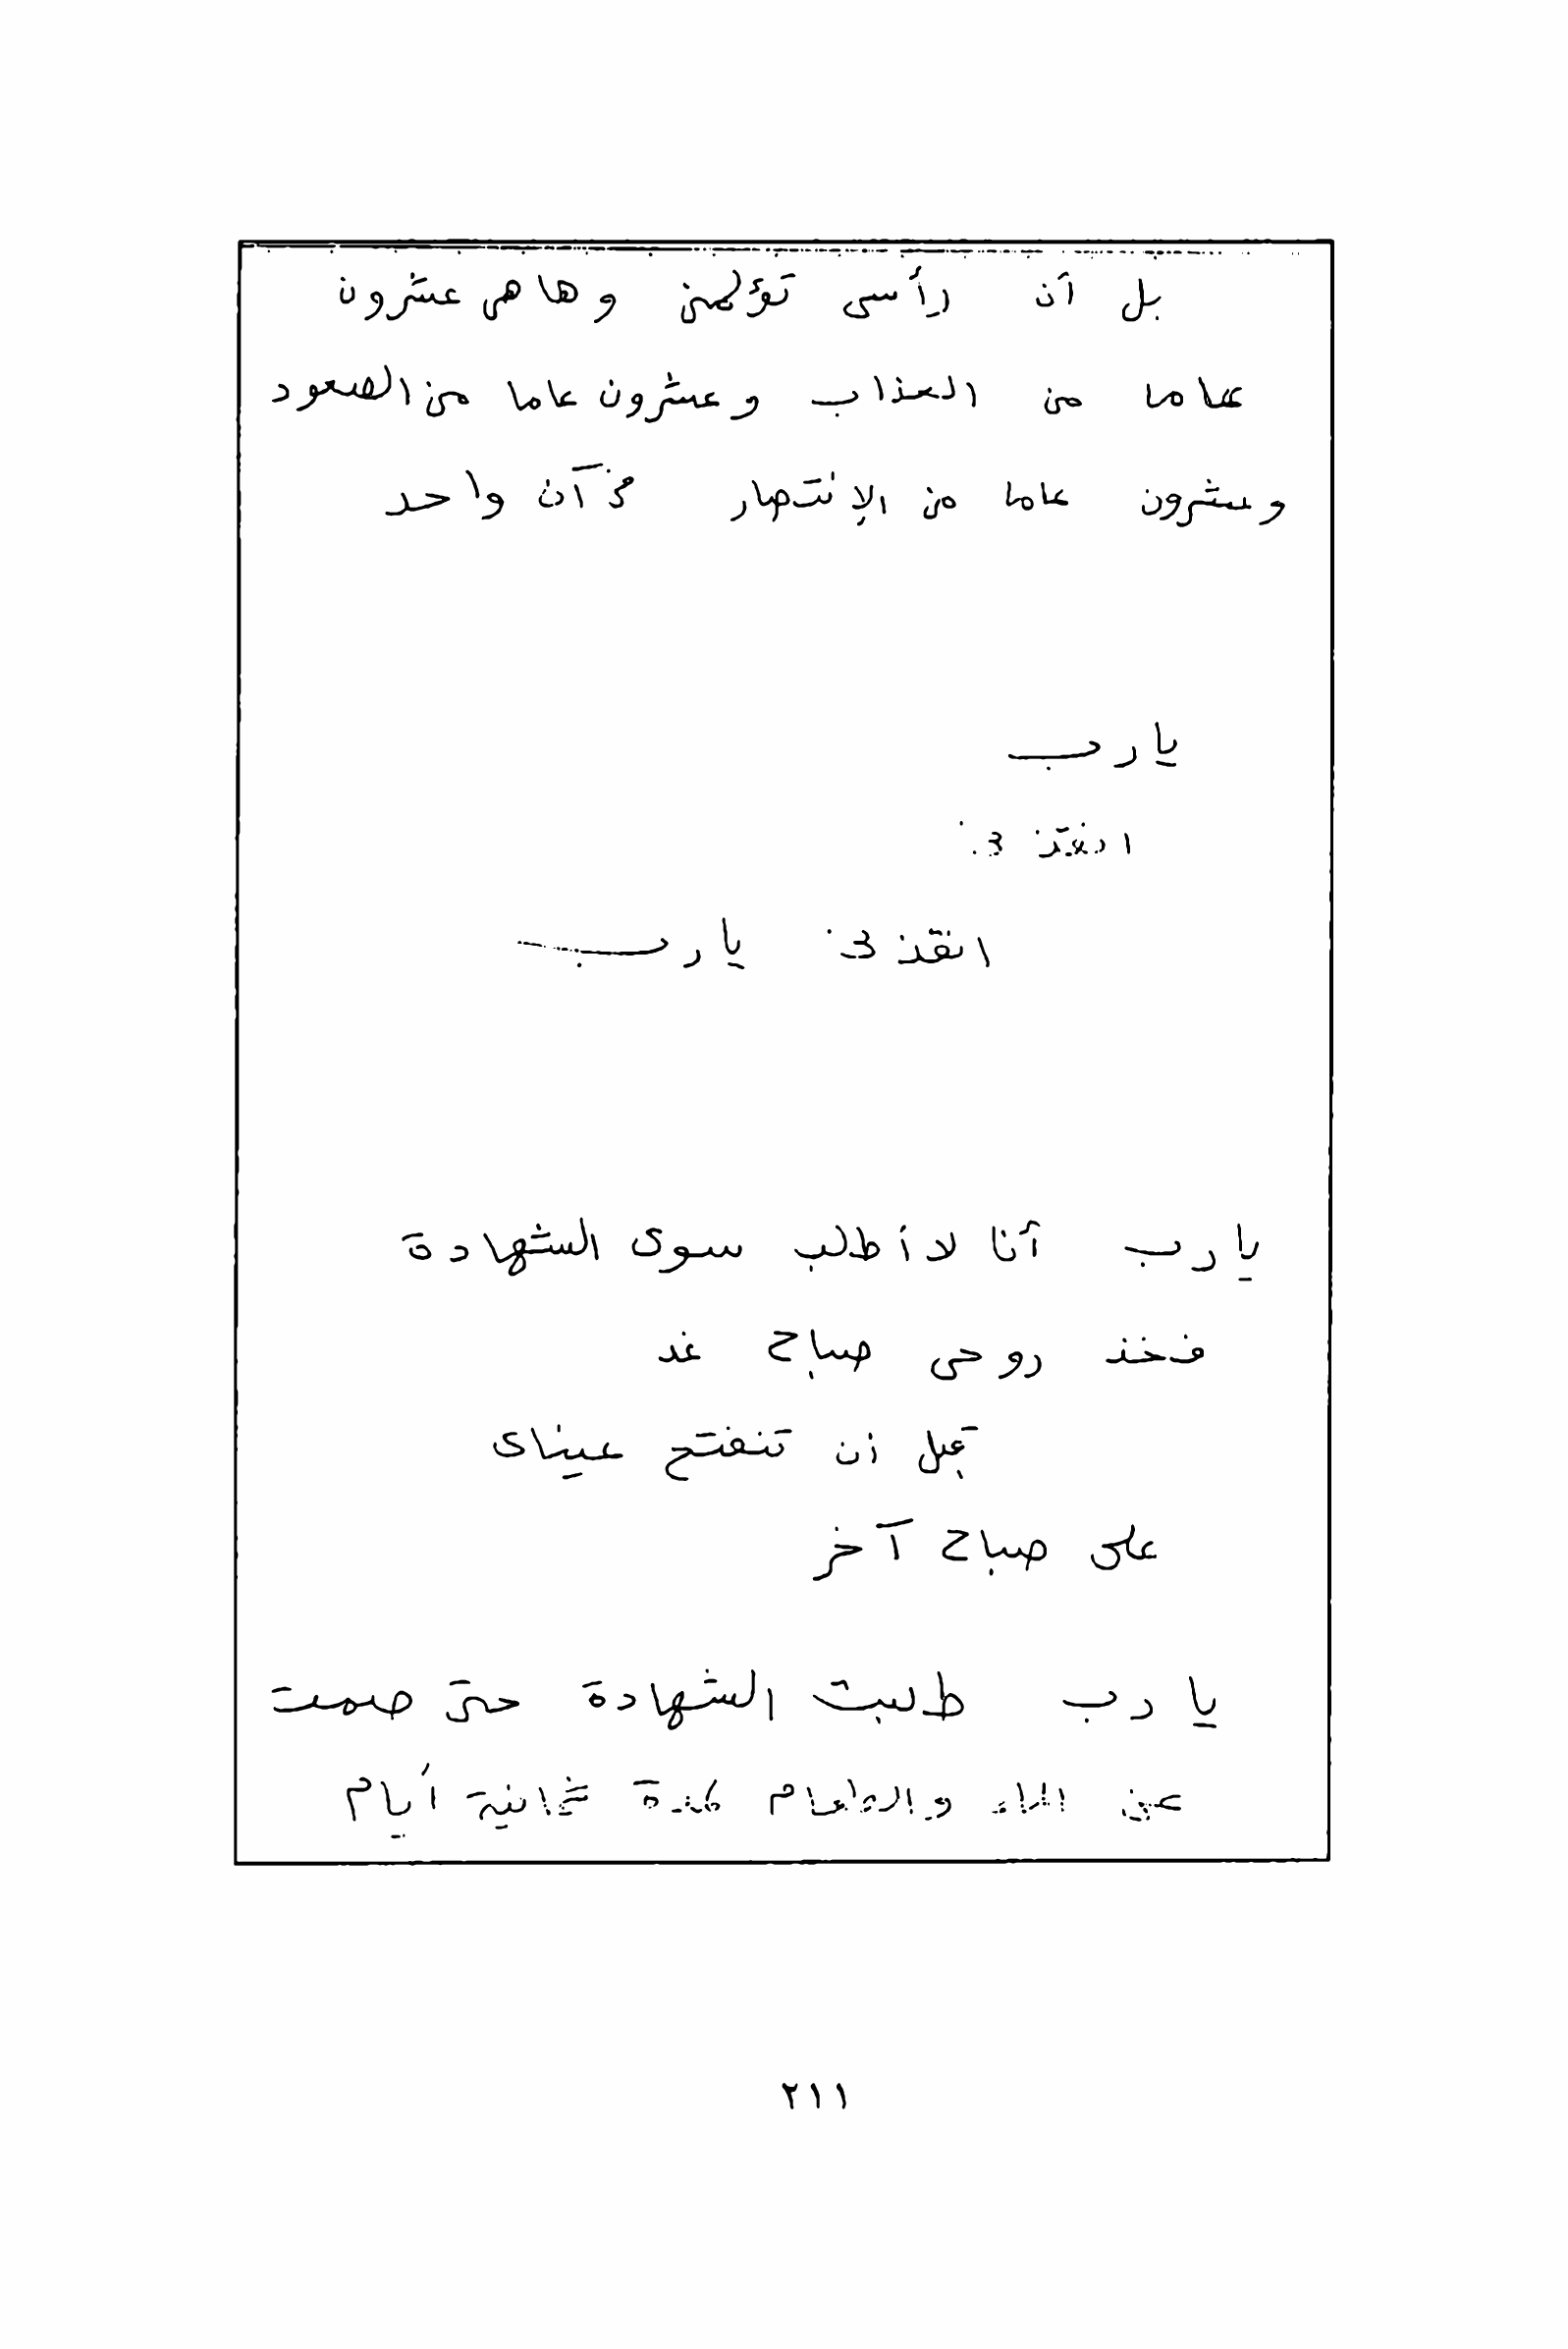 بل أن رأسى تؤلمنى وها هى عشرون
عاما من العذاب وعشرون عاما من الصعود
وعشرون عاما من الإنتصار فى آن واحد
يارب
انقذنى
انقذنى يارب
يارب أنا لا أطلب سوى الشهادة
فخذ روحى صباح غد
قبل أن تنفتح عيناى
على صباح آخر
يارب طلبت الشهادة حتى صمت
عن الماء والطعام لمدة ثمانية أيام
٢١١